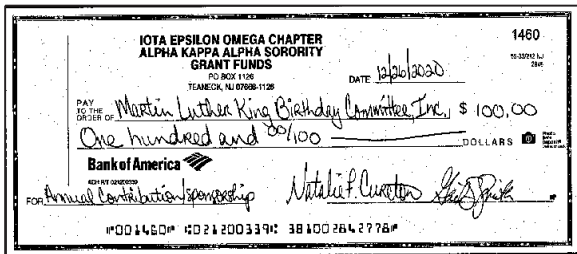 IOTA EPSILON OMEGA CHAPTER
ALPHA KAPPA ALPHA SORORITY
GRANT FUNDS
PO BOX 1126
TEANECK, NJ 07666-1126
1460
DATE 12/26/2020
PAY TO THE ORDER OF Martin Luther King Birthday Committee, Inc. $ 100.00
One hundred and 00/100 DOLLARS
Bank of America
ACH R/T 021200339
FOR Annual Contribution/sponsorship Natalie P. Cureton
⑈001460⑈ ⑆021200339⑆ 381002842778⑈